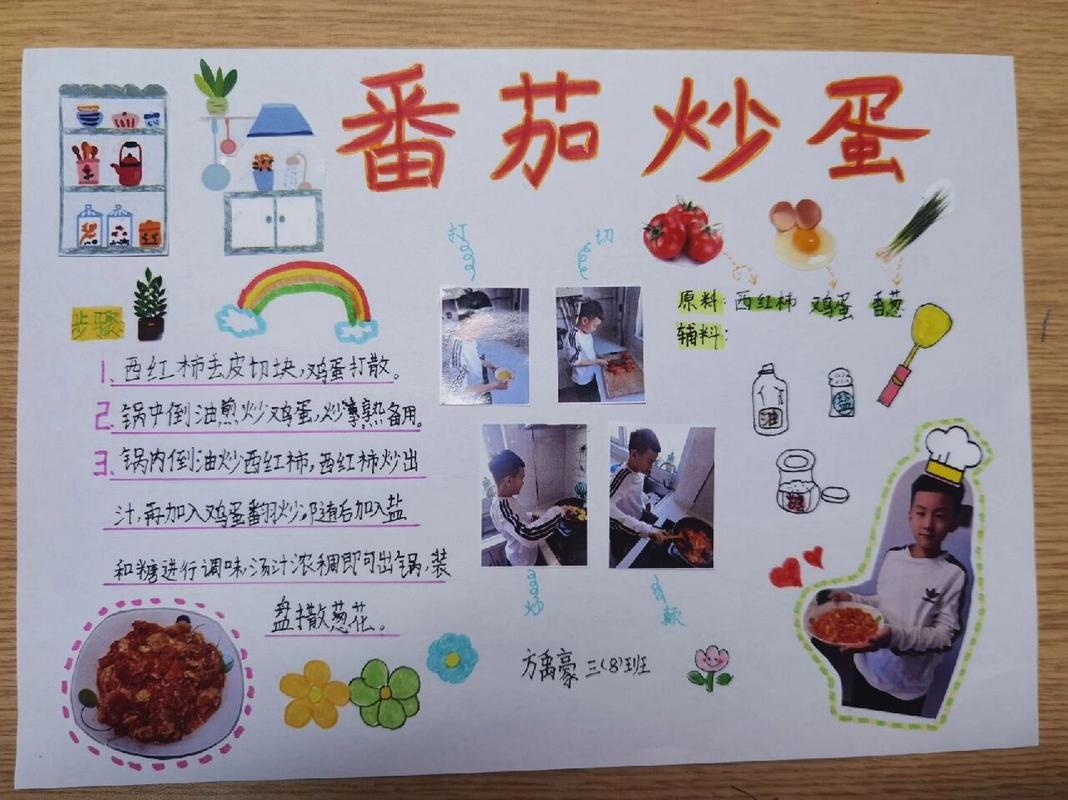 番茄炒蛋
打
切
原料:西红柿 鸡蛋 香葱
辅料:
油
盐
糖
步骤
1、西红柿去皮切块,鸡蛋打散。
2、锅中倒油煎炒鸡蛋,炒熟备用。
3、锅内倒油炒西红柿,西红柿炒出
汁,再加入鸡蛋翻炒,随后加入盐
和糖进行调味,汤汁浓稠即可出锅,装
盘撒葱花。
炒
颠
方禹豪 三(8)班